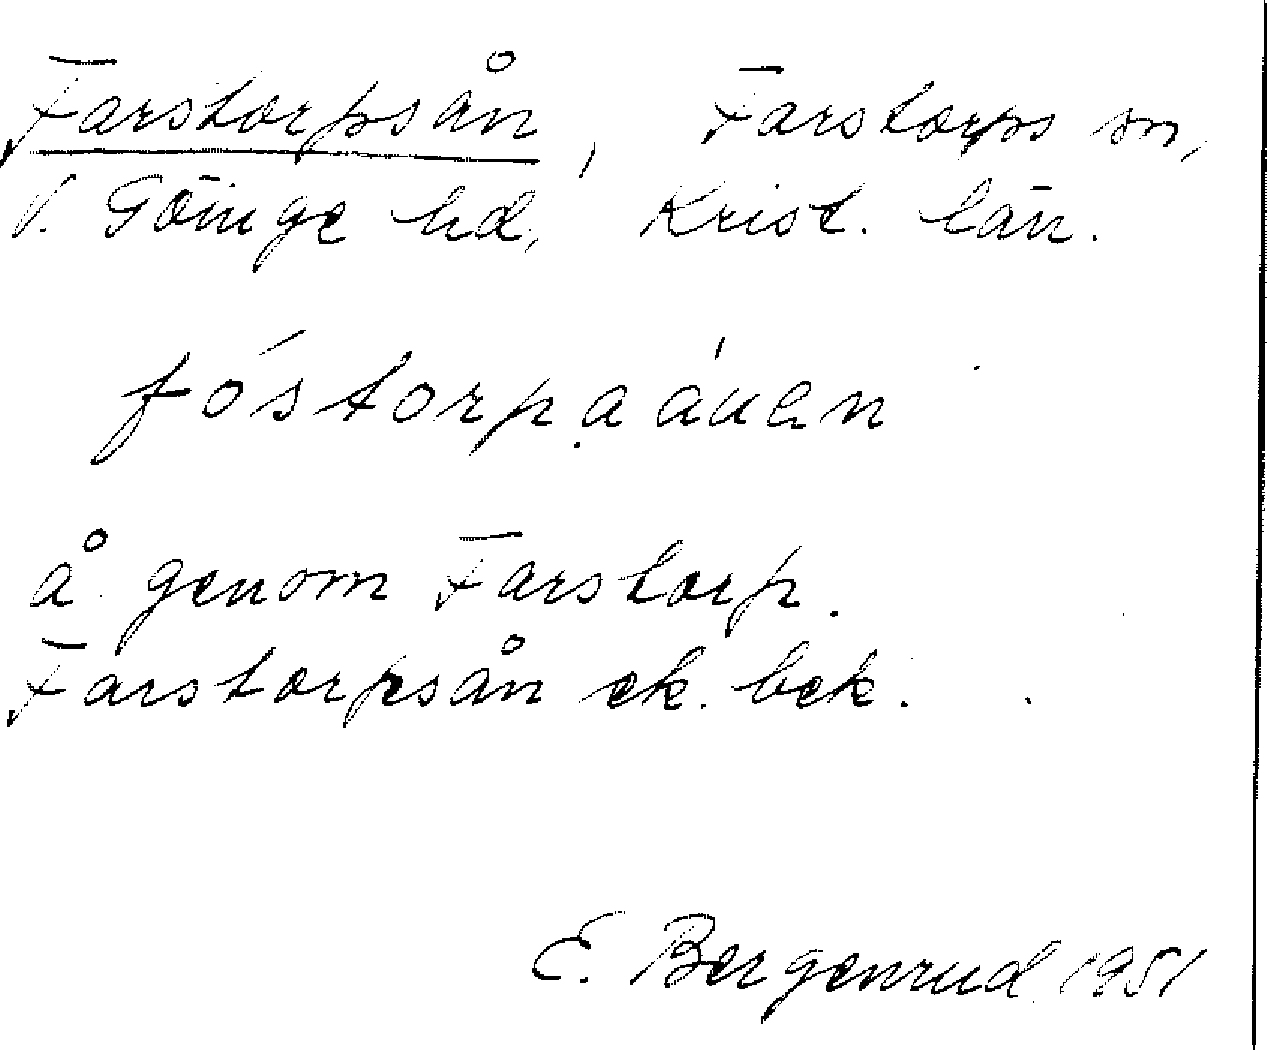 Farstorpsån, Farstorps sn,
V. Göinge hd, Krist. län.
fóstorpaáuen
å genom Farstorp.
Farstorpsån ek. bek.
E. Bergenrud 1951